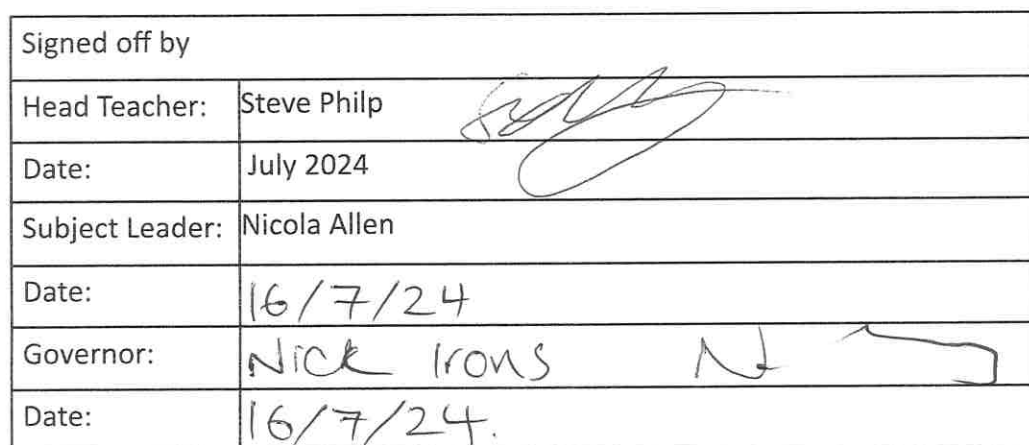 Signed off by
Head Teacher: Steve Philp
Date: July 2024
Subject Leader: Nicola Allen
Date: 16/7/24
Governor: Nick Irons
Date: 16/7/24.